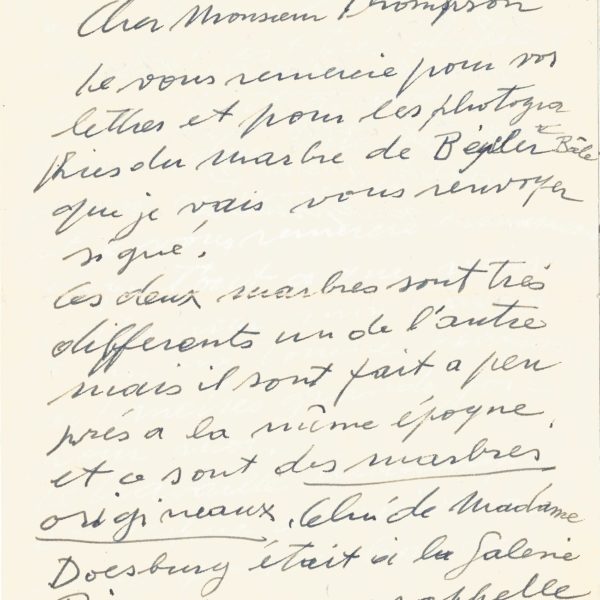 Cher Monsieur Thompson
Je vous remercie pour vos
lettres et pour les photogra
phies du marbre de Beyeler Bâle
que je vais vous renvoyer
signé.
Ces deux marbres sont très
differents un de l'autre
mais il sont fait a peu
près a la même époque,
et ce sont des marbres
origineaux. Celui de Madame
Doesburg était à la Galerie
rappelle